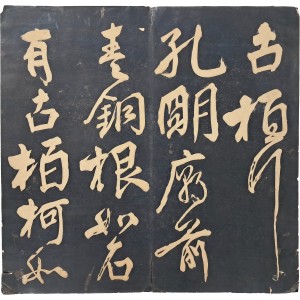 古栢行
孔明廟前
青銅根如石
有古栢柯如